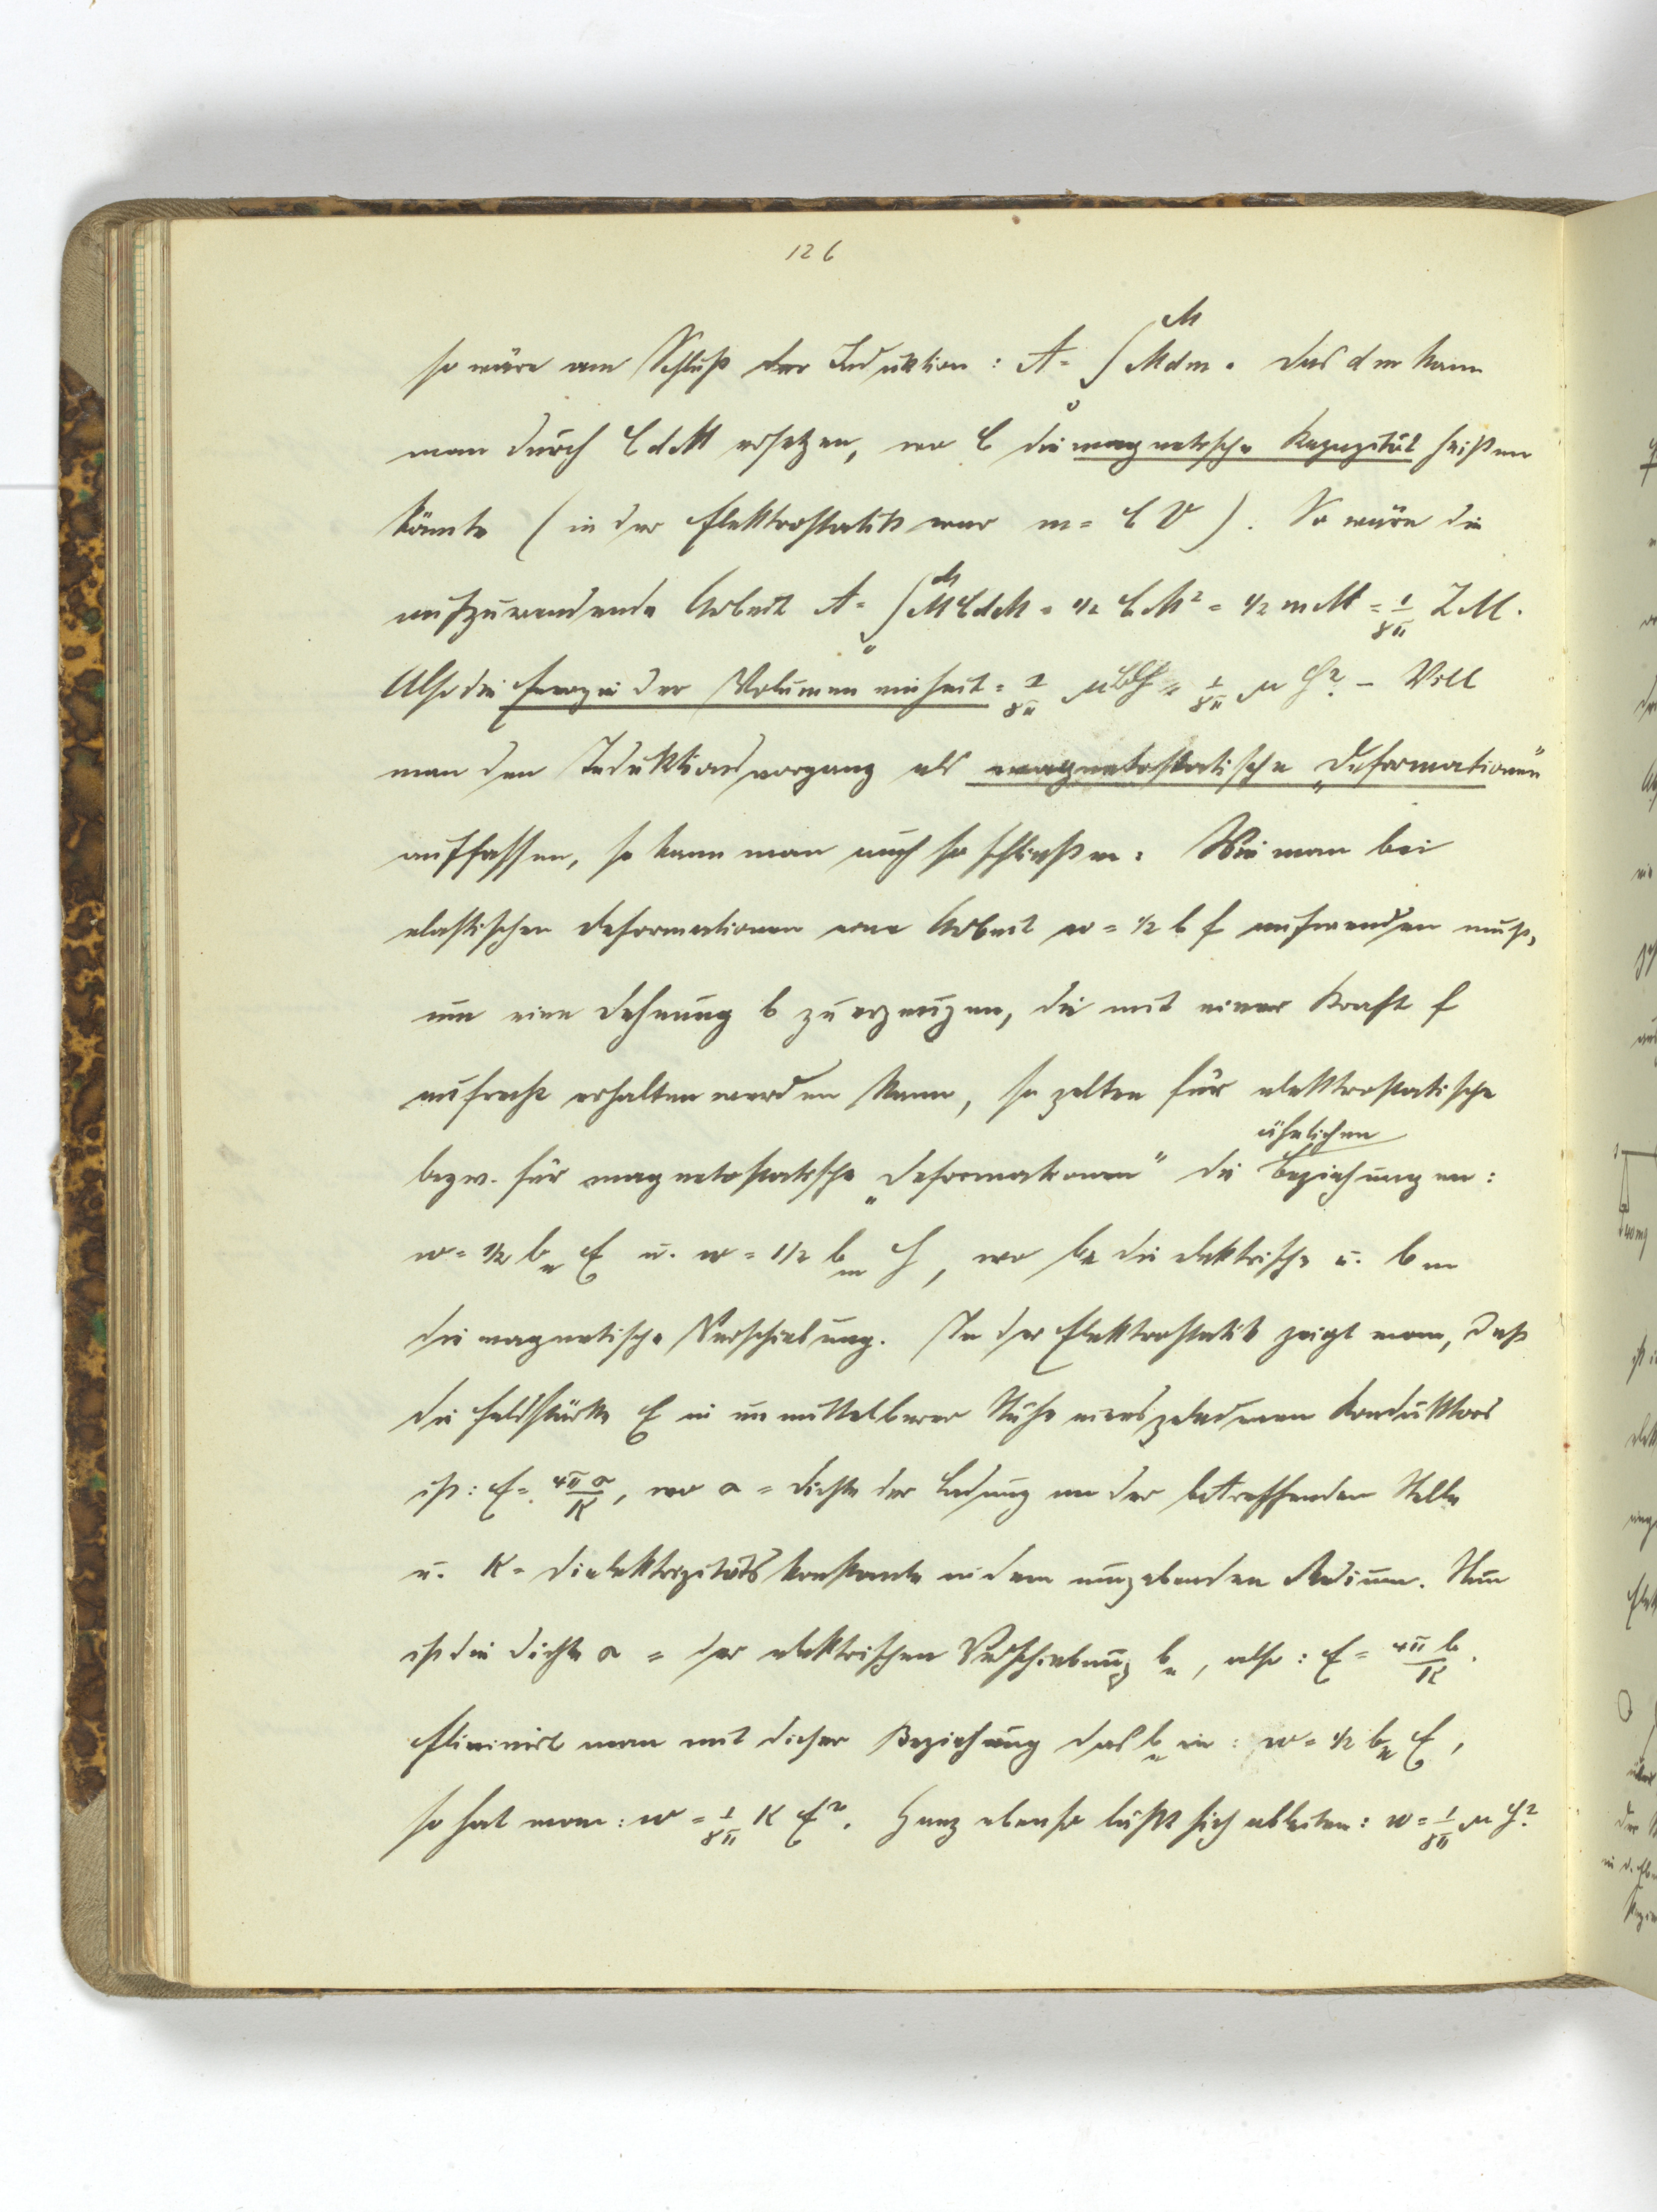 126
so wäre am Schluß der Induktion: A = ∫₀ᴹ M dm. Das dm kann
man durch C dM ersetzen, wo C die magnetische Kapazität heißen
könnte (in der Elektrostatik war m = C V). So wäre die
aufzuwendende Arbeit A = ∫₀ᴹ M C dM = 1/2 C M² = 1/2 m M = 1/8π Z M.
Also die Energie der Volumeneinheit = 1/8π μ H = 1/8π μ H². – Will
man den Induktionsvorgang als magnetostatische „Deformationen“
auffassen, so kann man auch so schließen: Wie man bei
elastischen Deformationen eine Arbeit w = 1/2 b f aufwenden muß,
um eine Dehnung b zu erzeugen, die mit einer Kraft f
aufrecht erhalten werden kann, so gelten für elektrostatische
ähnlichen
bezw. für magnetostatische „Deformationen“ die Beziehungen:
w = 1/2 bₑ E u. w = 1/2 bₘ H, wo be die elektrische u. bm
die magnetische Verschiebung. In der Elektrostatik zeigt man, daß
die Feldstärke E in unmittelbarer Nähe eines geladenen Konduktors
ist: E = 4πσ/K, wo σ = Dichte der Ladung an der betreffenden Stelle
u. K = Dielektrizitätskonstante in dem umgebenden Medium. Nun
ist die Dichte σ = der elektrischen Verschiebung bₑ, also: E = 4π b/K.
Eliminirt man mit dieser Beziehung das bₑ in: w = 1/2 bₑ E,
so hat man: w = 1/8π K E². Ganz ebenso läßt sich ableiten: w = 1/8π μ H².